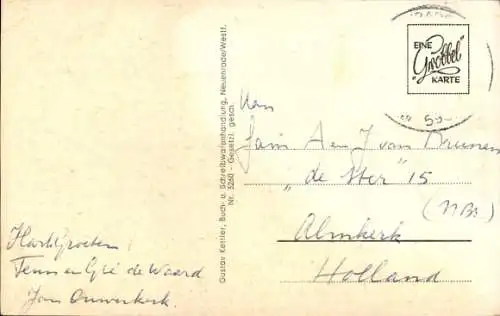 EINE
"Grobbel"
KARTE
Gustav Kettler, Buch- u. Schreibwarenhandlung, Neuenrade/Westf.
Nr. 5260 - Gesetzl. gesch.
Fam A en J van Drunen
"de Ster" 15
(NBr)
Almkerk
Holland
Hart. Groeten
Teun en Gré de Waard
Jan Ouwerkerk.